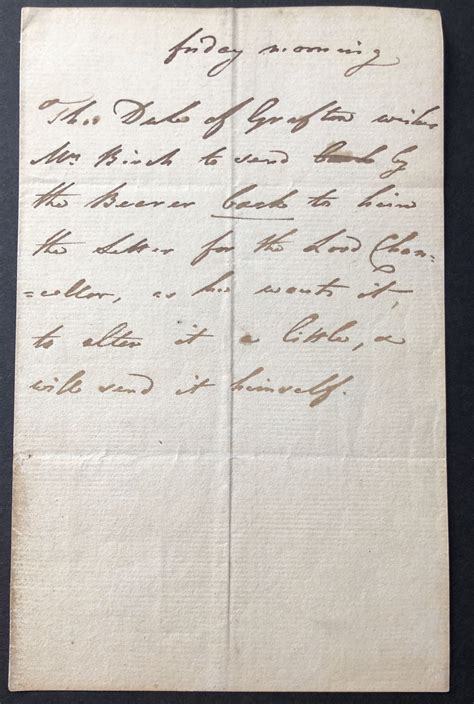 friday morning
The Duke of Grafton wishes
Mr Birch to send back by
the Bearer back to him
the Letter for the Lord Chan=
=cellor, as he wants it,
to alter it a little, &
will send it himself.